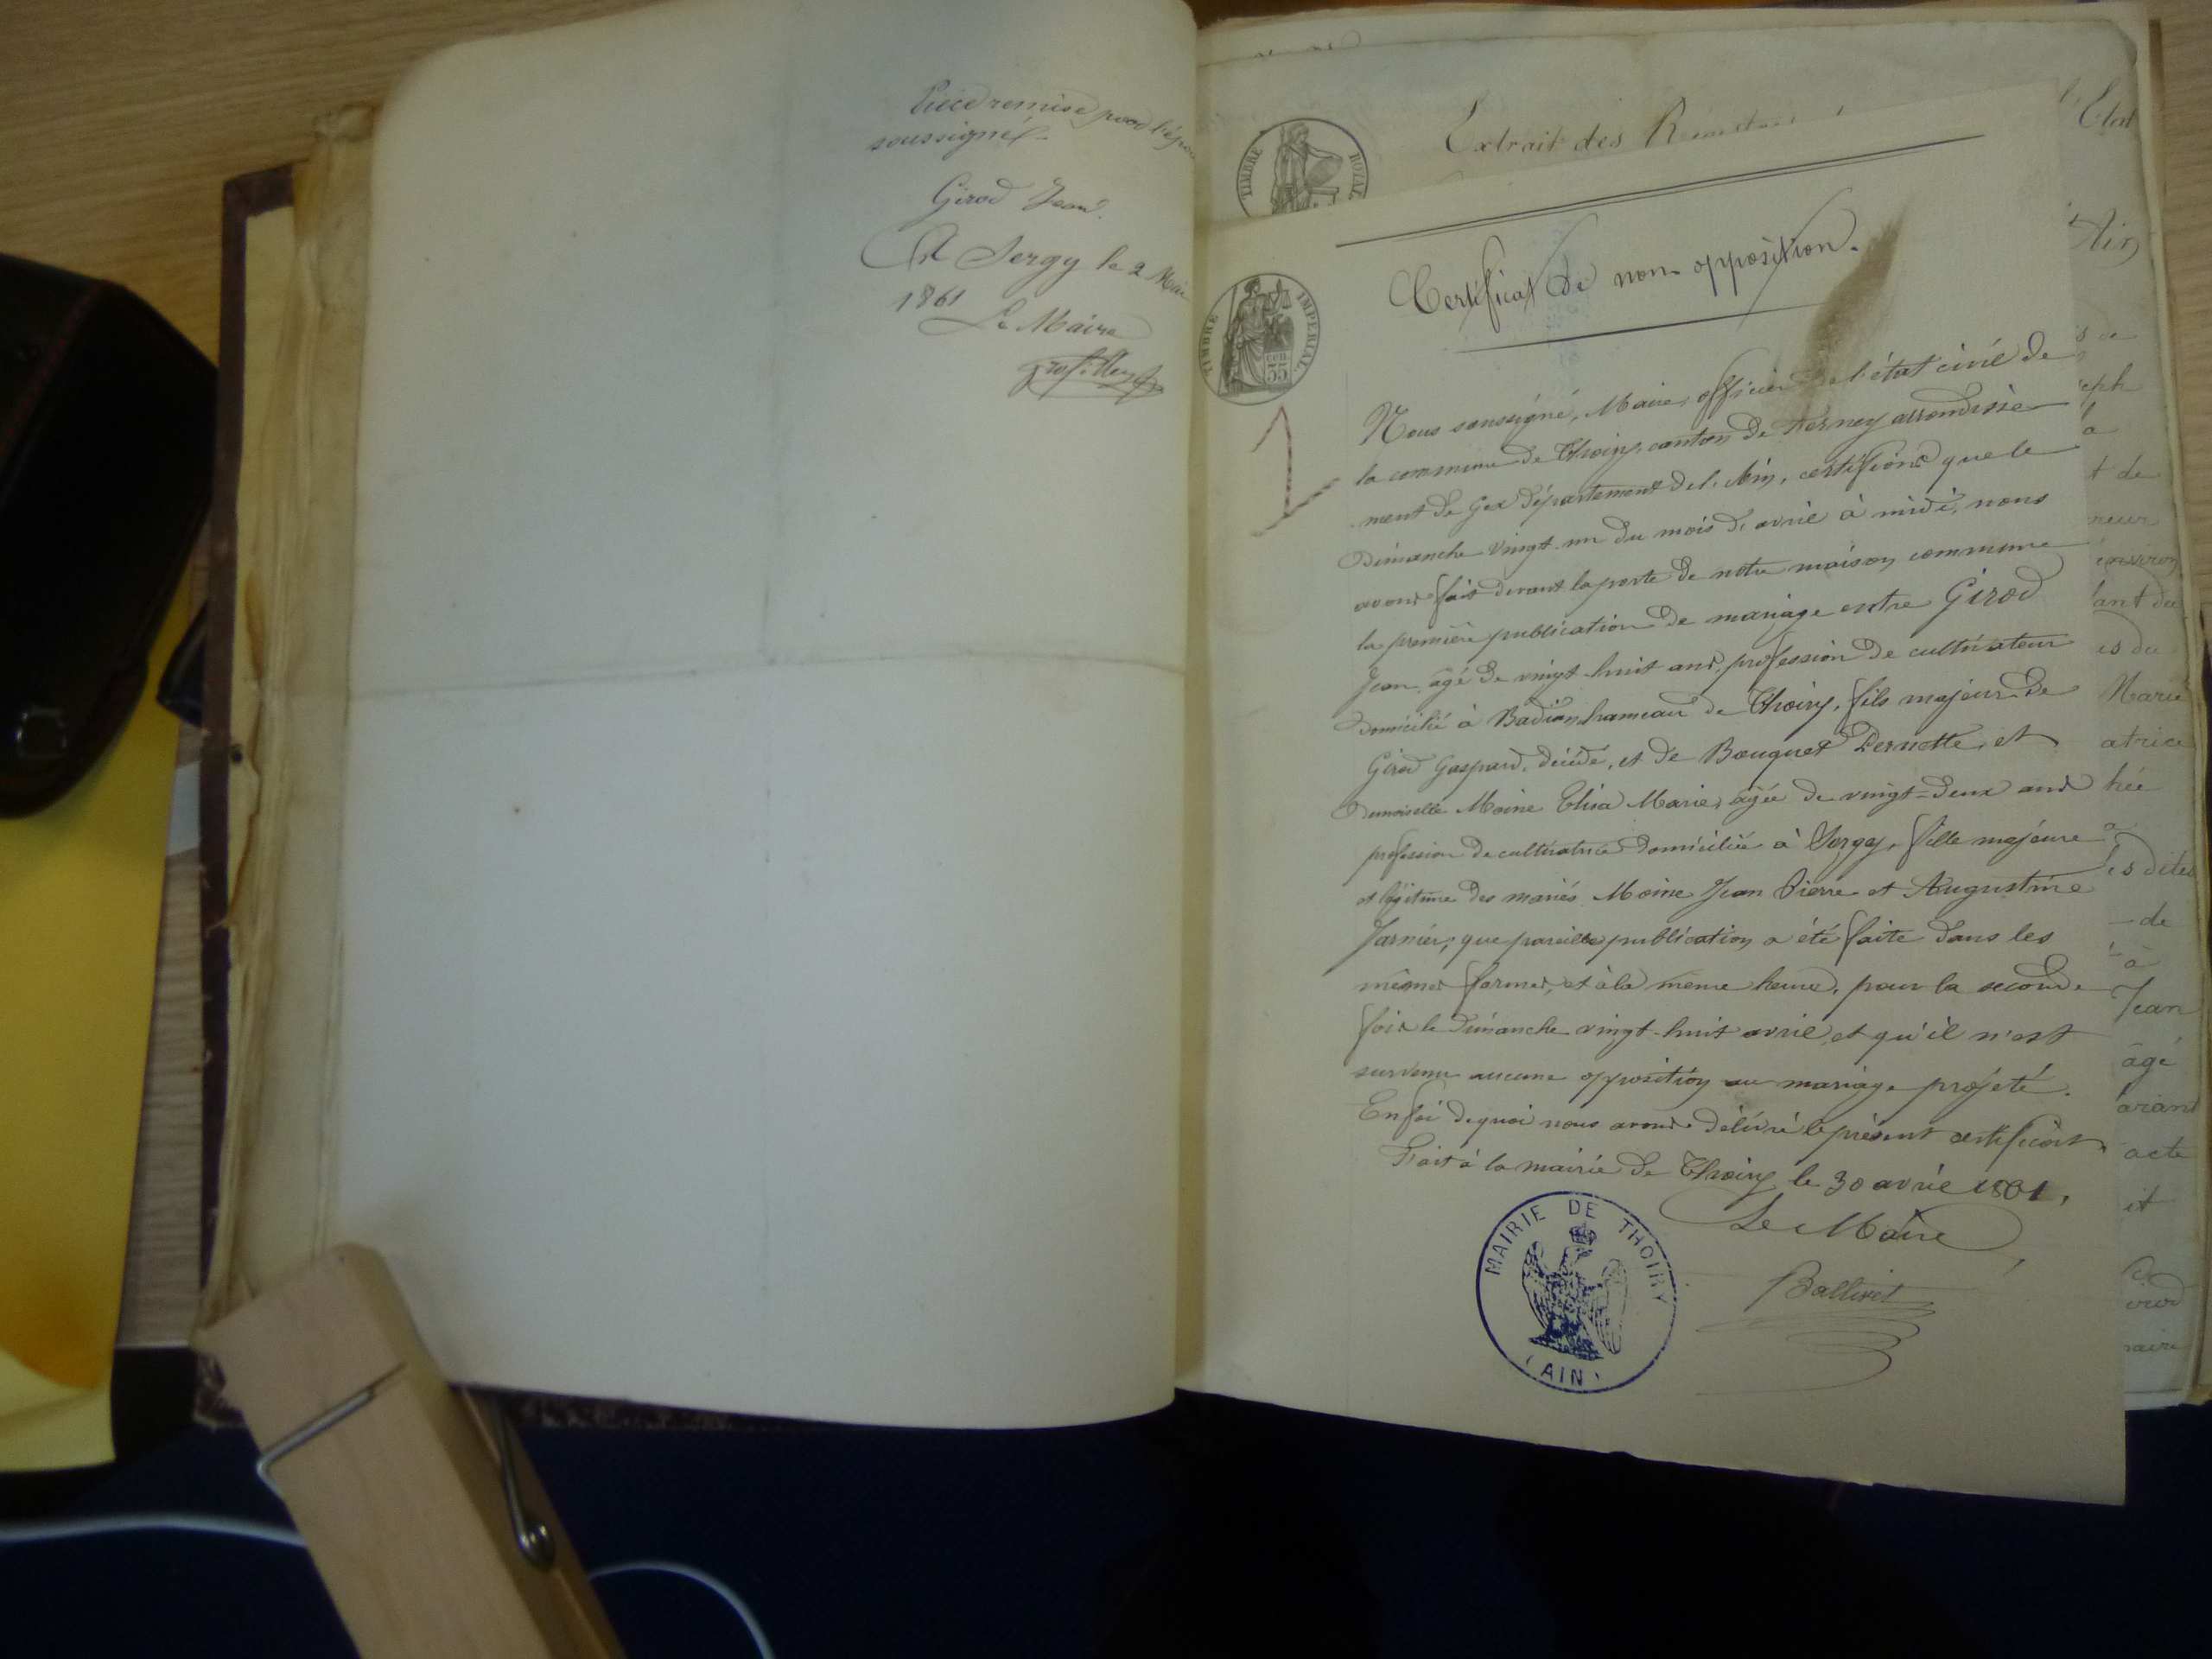 Pièce remise par l'épou
soussigné
Girod Jean.
A Sergy le 2 Mai
1861
Le Maire
Extrait des
l'Etat
TIMBRE ROYAL
Ain
Certificat de non opposition.
TIMBRE IMPERIAL
cen.
55
1
Nous soussigné, Maire, officier de l'état civil de
la commune de Thoiry, canton de Ferney arrondisse
ment de Gex département de l'Ain, certifions que le
Dimanche vingt-un du mois d'avril à midi, nous
avons fait devant la porte de notre maison commune
la première publication de mariage entre Girod
Jean, âgé de vingt-huit ans, profession de cultivateur
domicilié à Badian hameau de Thoiry, fils majeur de
Girod Gaspard, décédé, et de Bouquet Pernette, et
Demoiselle Moine Elisa Marie, agée de vingt-deux ans
profession de cultivatrice domiciliée à Sergy, fille majeure
et légitime des mariés Moine Jean Pierre et Augustine
Jarnier; que pareille publication a été faite dans les
mêmes formes, et à la même heure, pour la seconde
fois le Dimanche vingt-huit avril, et qu'il n'est
survenu aucune opposition au mariage projeté.
En foi de quoi nous avons délivré le présent certificat.
Fait à la mairie de Thoiry le 30 avril 1861.
Le Maire
Ballivet
MAIRIE DE THOIRY
(AIN)
eph
a
t de
neur
environ
lant du
es du
Marie
atrice
hée
es dites
de
à
Jean
âgé
acte
it